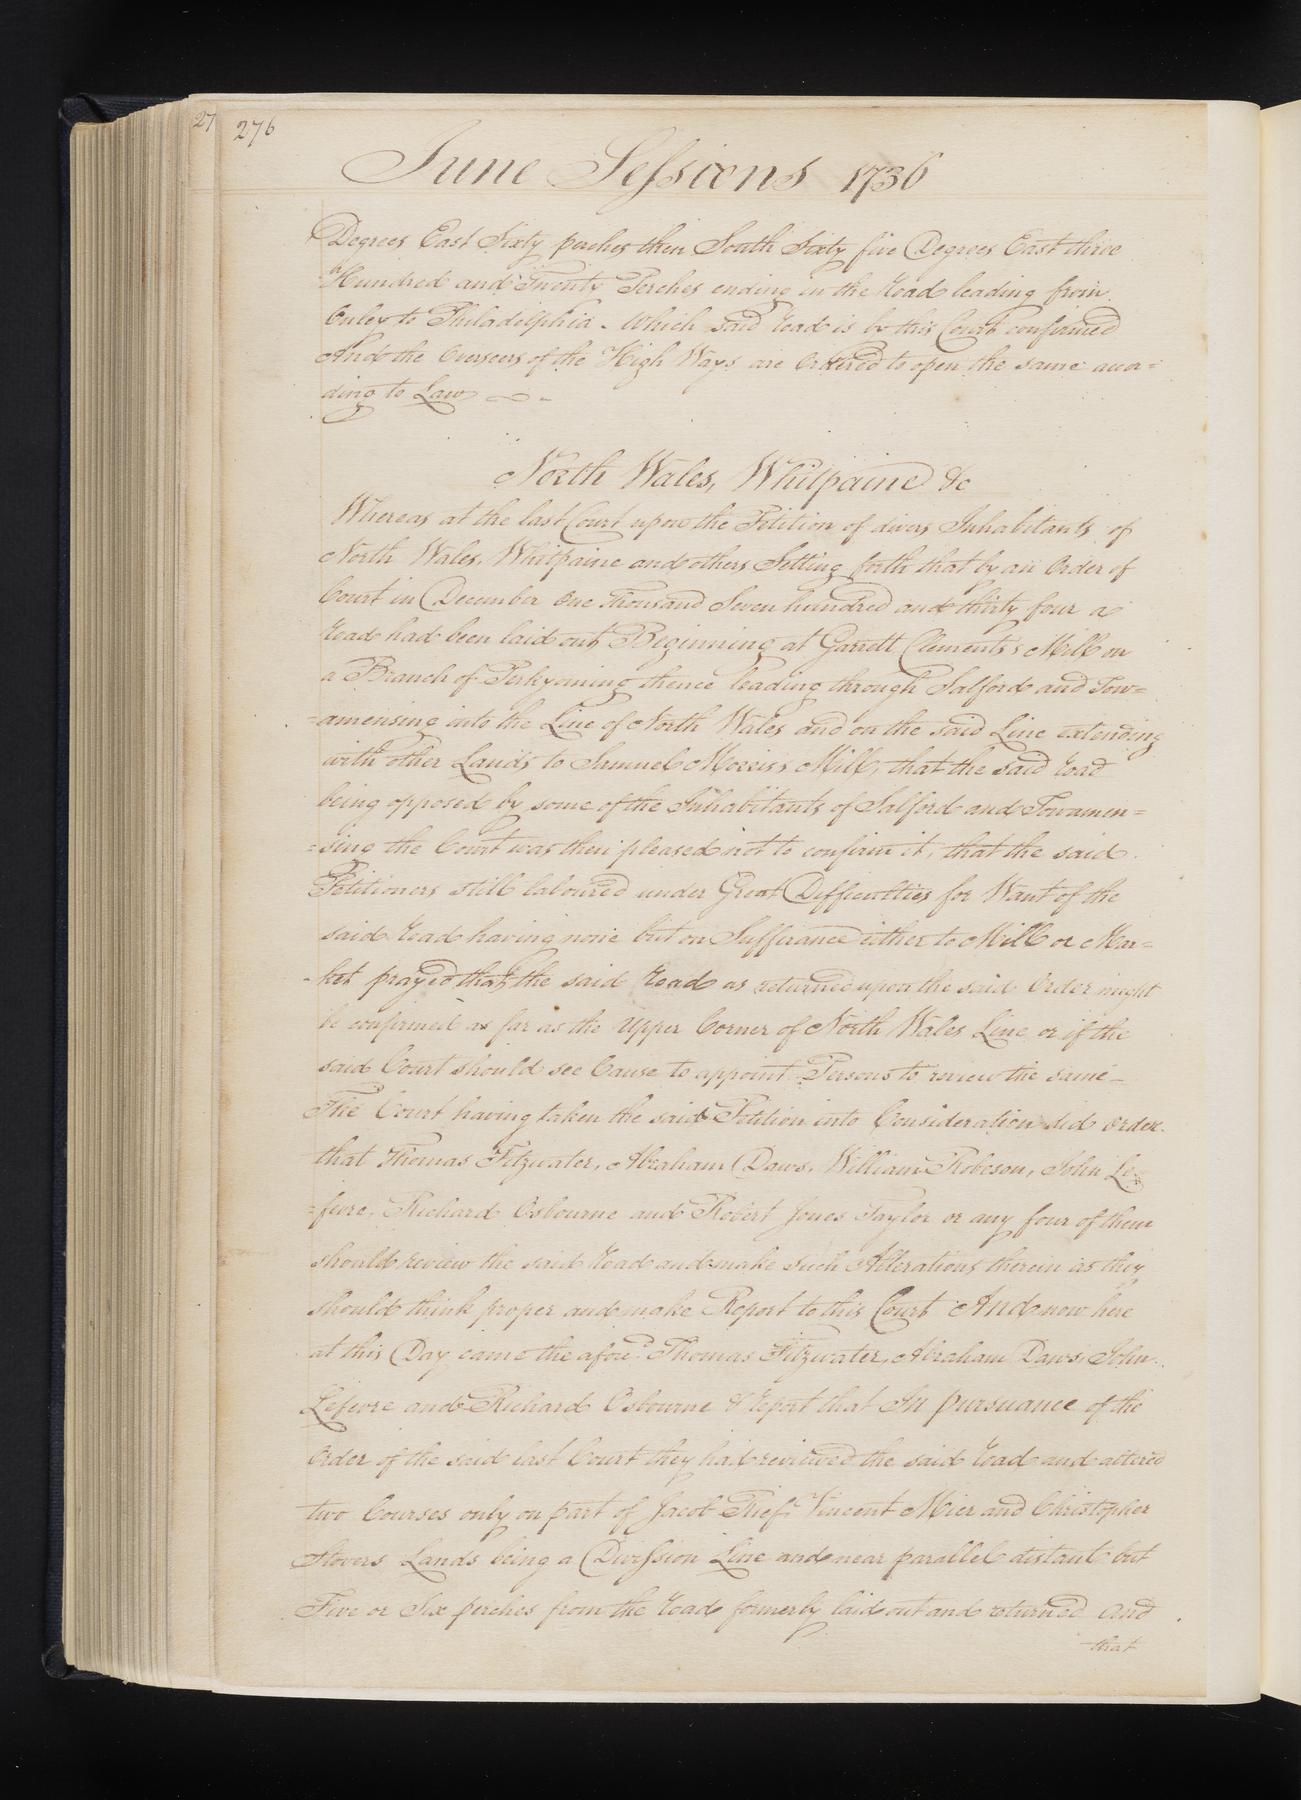 27
276
June Sessions 1736
Degrees East Sixty perches then South Sixty five Degrees East three
Hundred and Twenty Perches ending in the Road leading from
Ouley to Philadelphia. Which said Road is by this Court confirmed
And the Overseers of the High Ways are Ordered to open the same accor=
ding to Law
North Wales, Whitpaine &c
Whereas at the last Court upon the Petition of divers Inhabitants of
North Wales, Whitpaine and others Setting forth that by an Order of
Court in December One Thousand Seven hundred and thirty four a
Road had been laid out Beginning at Garrett Clements's Mill on
a Branch of Perkyoming thence leading through Salford and Tow=
=amensing into the Line of North Wales and on the said Line extending
with other Lands to Samuel Morris's Mill, that the said road
being opposed by some of the Inhabitants of Salford and Towamen=
=sing the Court was then pleased not to confirm it, that the said
Petitioners still laboured under Great Difficulties for Want of the
said Road having none but on Sufferance either to Mill or Mar=
=ket prayed that the said Road as returned upon the said Order might
be confirmed as far as the Upper Corner of North Wales Line or if the
said Court should see Cause to appoint Persons to review the same _
The Court having taken the said Petition into Consideration did order
that Thomas Fitzwater, Abraham Daws, William Robeson, John Le=
=fevre, Richard Osbourne and Robert Jones Taylor or any four of them
should review the said Road and make such Alterations therein as they
should think proper and make Report to this Court And now here
at this Day came the afores:d Thomas Fitzwater, Abraham Daws, John
Lefevre and Richard Osbourne & report that In pursuance of the
Order of the said last Court they had reviewed the said Road and altered
two Courses only on part of Jacob Vincent Mier and Christopher
Stovers Lands being a Division Line and near parallel distant but
Five or Six perches from the Road formerly laid out and returned and
that